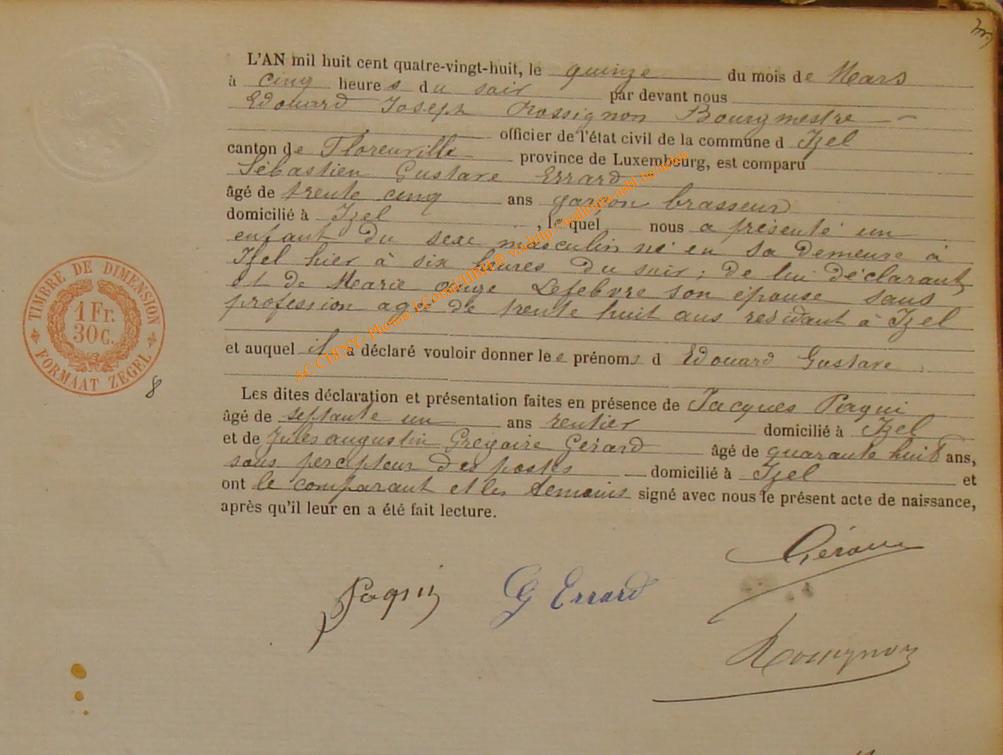 L'AN mil huit cent quatre-vingt-huit, le quinze du mois de Mars
à cinq heures du soir par devant nous
Edouard Joseph Rossignon Bourgmestre
officier de l'état civil de la commune d Izel
canton de Florenville province de Luxembourg, est comparu
Sébastien Gustave Errard
âgé de trente cinq ans garçon brasseur
domicilié à Izel, lequel nous a présenté un
enfant du sexe masculin né en sa demeure à
Izel hier à six heures du soir; de lui déclarant
et de Marie Lefebvre son épouse sans
profession agée de trente huit ans residant à Izel
et auquel il a déclaré vouloir donner les prénoms d Edouard Gustave.
Les dites déclaration et présentation faites en présence de Jacques Paqui
âgé de septante un ans rentier domicilié à Izel
et de Jules augustin Grégoire Gerard âgé de quarante huit ans,
sous percepteur des postes domicilié à Izel et
ont le comparant et les temoins signé avec nous le présent acte de naissance,
après qu'il leur en a été fait lecture.
TIMBRE DE DIMENSION
1 Fr.
30 C.
FORMAAT ZEGEL
8
Gérard
Paquis
G Errard
Rossignon